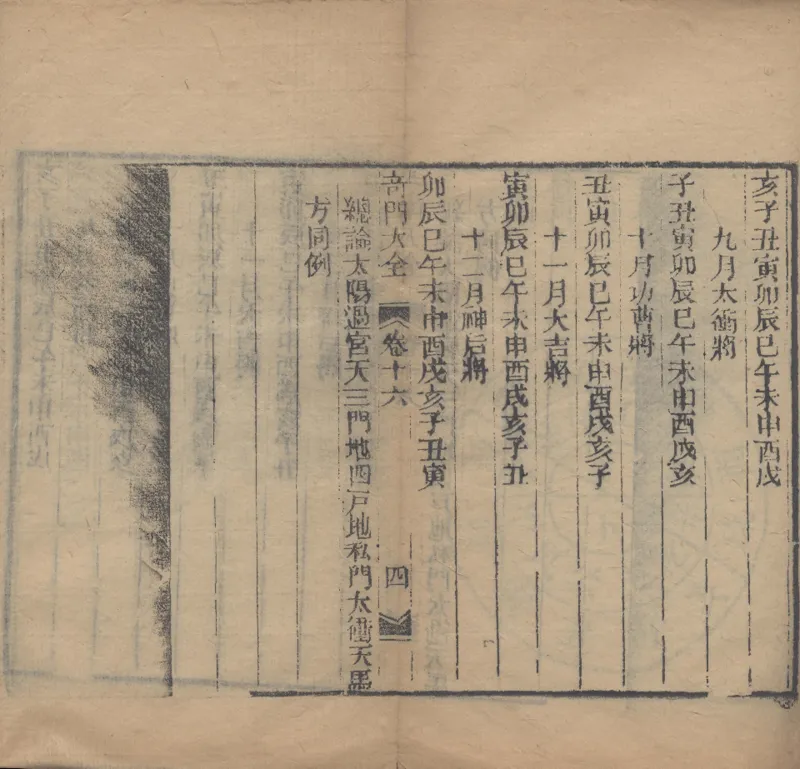 亥子丑寅卯辰巳午未申酉戌
九月太衝將
子丑寅卯辰巳午未申酉戌亥
十月功曹將
丑寅卯辰巳午未申酉戌亥子
十一月大吉將
寅卯辰巳午未申酉戌亥子丑
十二月神后將
卯辰巳午未申酉戌亥子丑寅
奇門大全 卷十六 四
總論太陽過宮天三門地四戸地私門太衝天馬
方同例